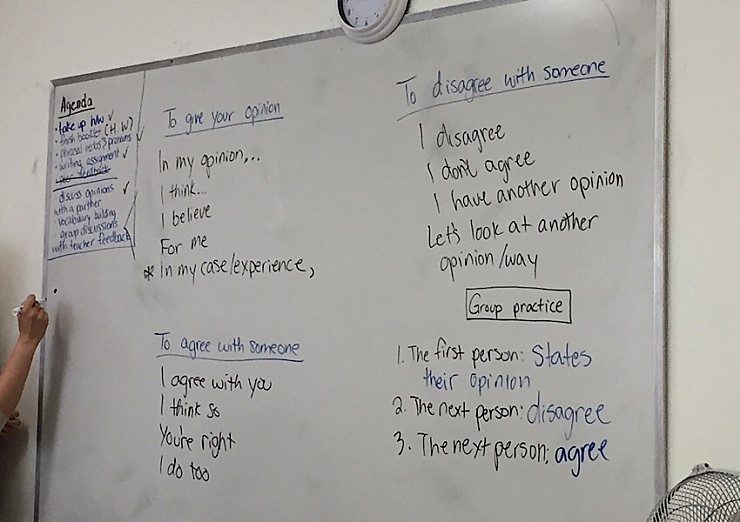 Agenda
• take up h/w ✓
• finish booklet (H.W)
• phrasal verbs & pronouns ✓
• writing assignment ✓
discuss opinions ✓
with a partner
vocabulary building
group discussions
with teacher feedback
To give your opinion
In my opinion,...
I think...
I believe
For me
* In my case/experience,
To agree with someone
I agree with you
I think so
You're right
I do too
To disagree with someone
I disagree
I don't agree
I have another opinion
Let's look at another
opinion/way
Group practice
1. The first person: States
their opinion
2. The next person: disagree
3. The next person: agree